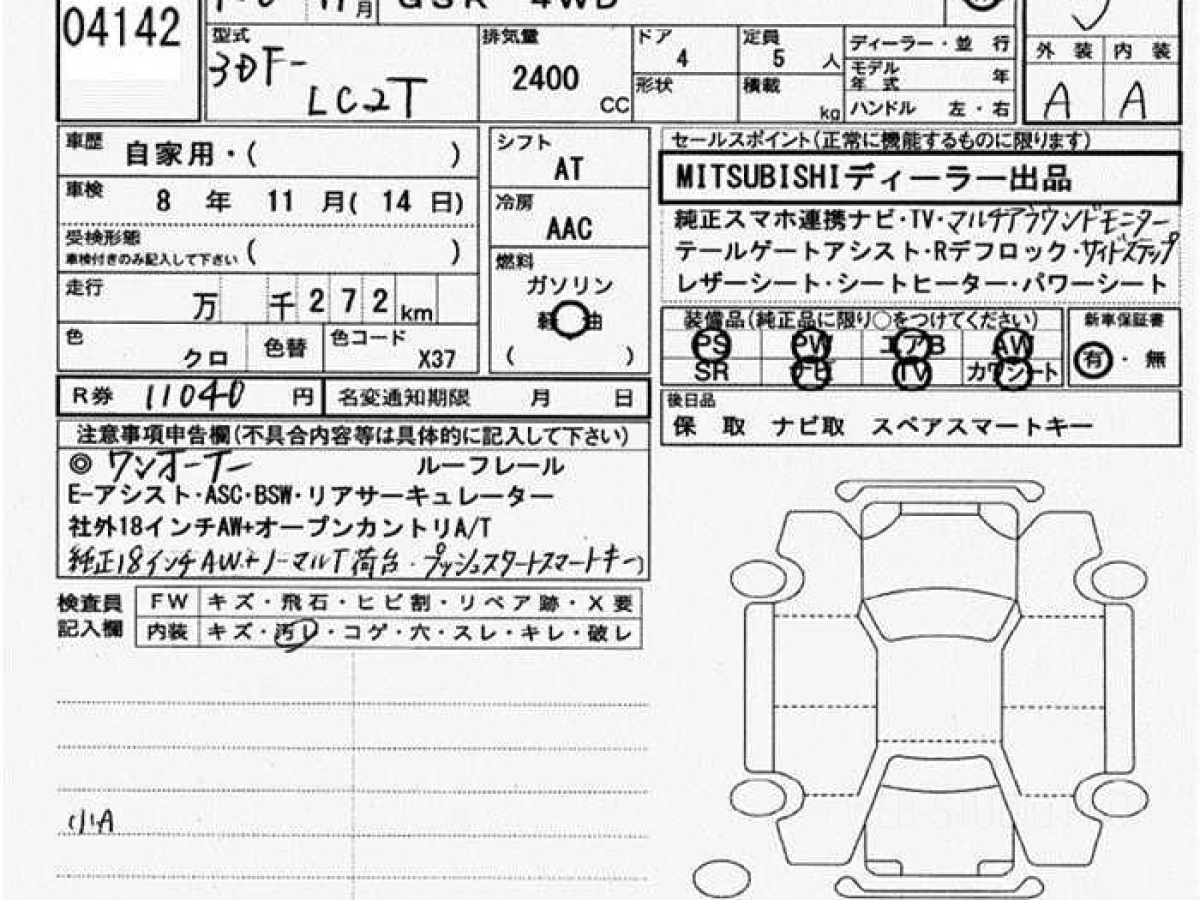 04142
GSR 4WD
月
型式 3DF-LC2T
排気量 2400 CC
ドア 4
定員 5 人
形状
積載 kg
ディーラー・並 行
モデル年式 年
ハンドル 左・右
外 装 内 装
A A
車歴 自家用・( )
車検 8 年 11 月( 14 日)
受検形態
車検付きのみ記入して下さい ( )
走行 万 千 2 7 2 km
色 クロ 色替 色コード X37
シフト
AT
冷房
AAC
燃料
ガソリン
軽 油
( )
セールスポイント(正常に機能するものに限ります)
MITSUBISHIディーラー出品
純正スマホ連携ナビ・TV・マルチアラウンドモニター
テールゲートアシスト・Rデフロック・サイドステップ
レザーシート・シートヒーター・パワーシート
装備品(純正品に限り○をつけてください)
PS PW エアB AW
SR ナビ TV カワシート
新車保証書
有・無
R券 11040 円 名変通知期限 月 日
後日品
保 取 ナビ取 スペアスマートキー
注意事項申告欄(不具合内容等は具体的に記入して下さい)
◎ ワンオーナー ルーフレール
E-アシスト・ASC・BSW・リアサーキュレーター
社外18インチAW+オープンカントリA/T
純正18インチAW+ノーマルT荷台・プッシュスタートスマートキー
検査員記入欄
FW キズ・飛石・ヒビ割・リペア跡・X要
内装 キズ・汚レ・コゲ・穴・スレ・キレ・破レ
小A